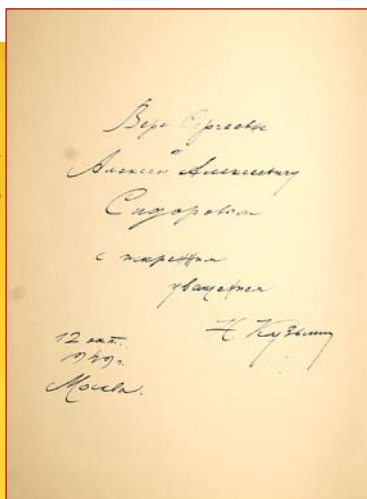 Вере Сергеевне
и
Алексею Алексеевичу
Сидоровым
с искренним
уважением
Н. Кузьмин
12 окт.
1949 г.
Москва.